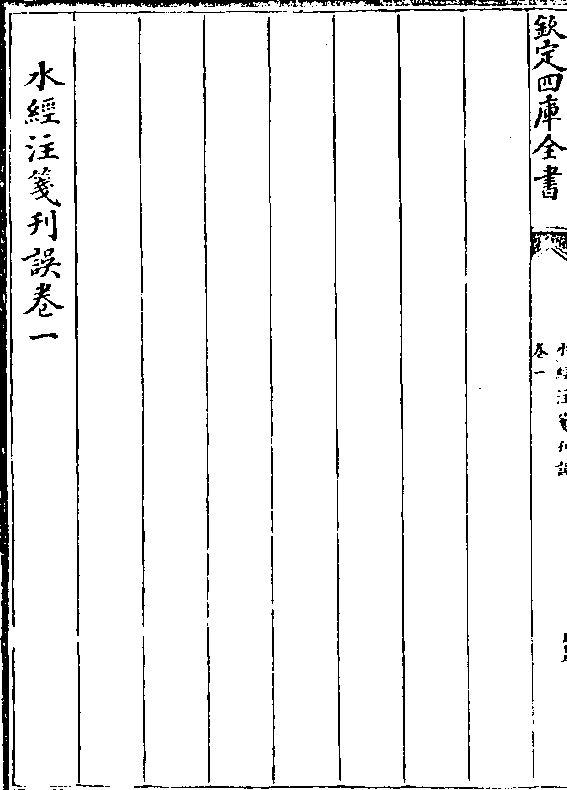 欽定四庫全書
水經注箋刊誤
卷一
水經注箋刊誤卷一